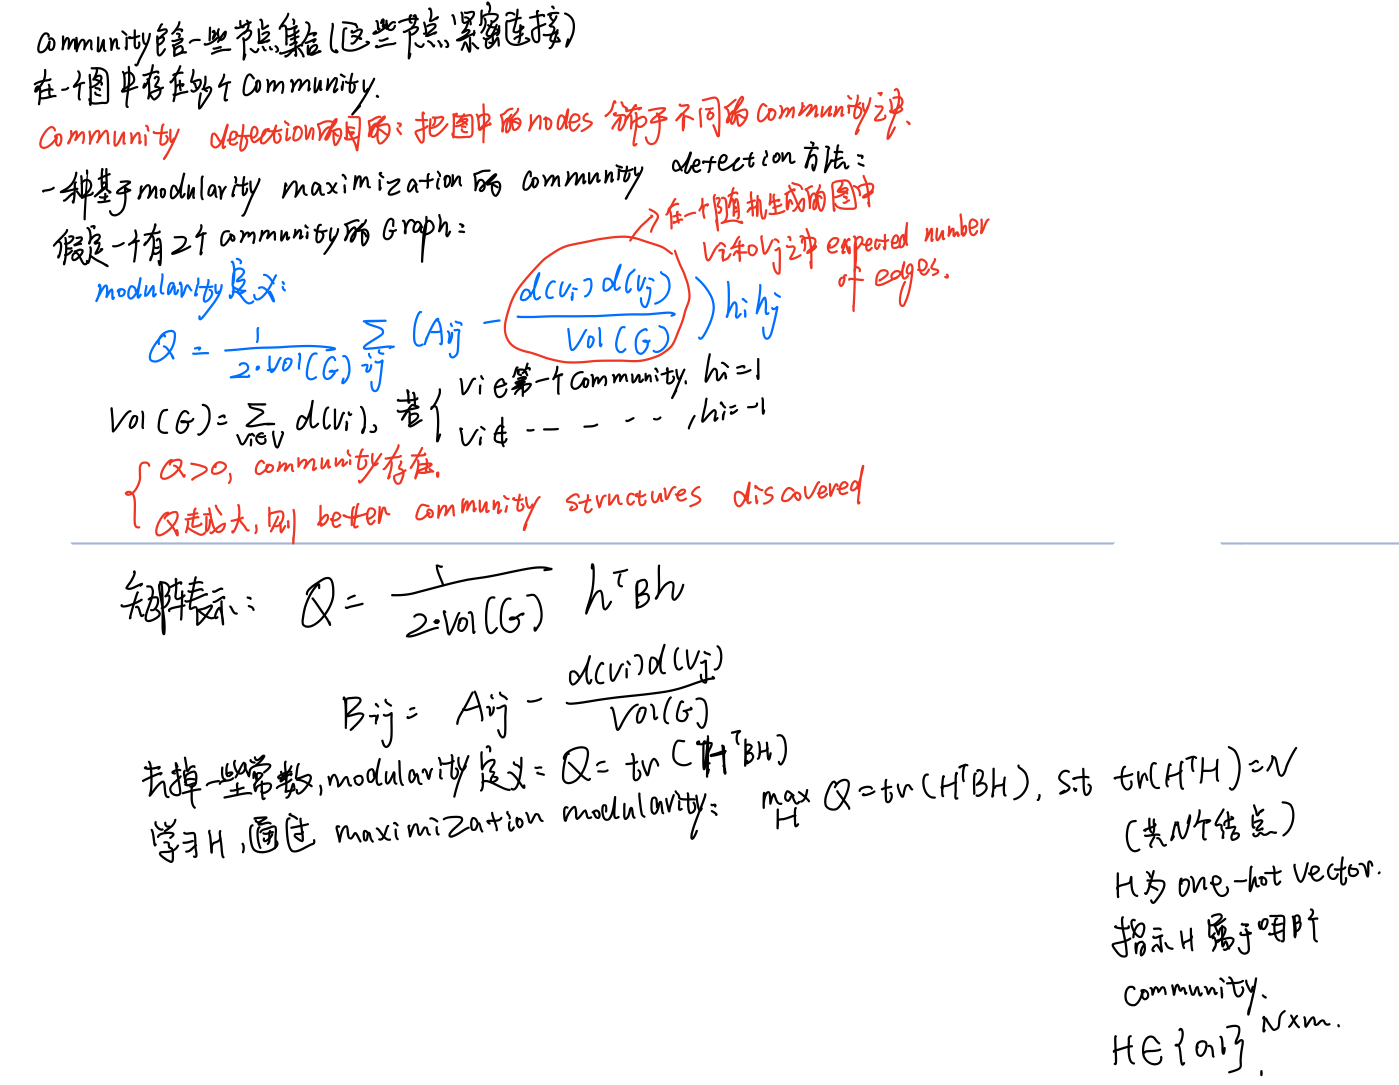 community包含一些节点集合(这些节点紧密连接)
在一个图中存在多个Community.
Community detection的目的:把图中的nodes 分布于不同的community之中.
一种基于modularity maximization的 community detection方法:
假定一个有2个community的Graph:
→在一个随机生成的图中
vi和vj之中 expected number
of edges.
modularity定义:
Q = 1/(2·vol(G)) Σij (Aij - d(vi)d(vj)/Vol(G)) hihj
Vol(G)=Σvi∈V d(vi), 若{ vi∈第一个Community. hi=1
vi∉ -- - - - -, hi=-1
{ Q>0, community存在.
Q越大,则 better community structures discovered
矩阵表示: Q = 1/(2·Vol(G)) hᵀBh
Bij = Aij - d(vi)d(vj)/Vol(G)
去掉一些常数,modularity定义: Q = tr(HᵀBH)
学习H,通过 maximization modularity: max H Q=tr(HᵀBH), s.t tr(HᵀH)=N
(共N个结点)
H为one-hot vector.
指示H属于哪个
community.
H∈{0,1}ᴺˣᵐ.